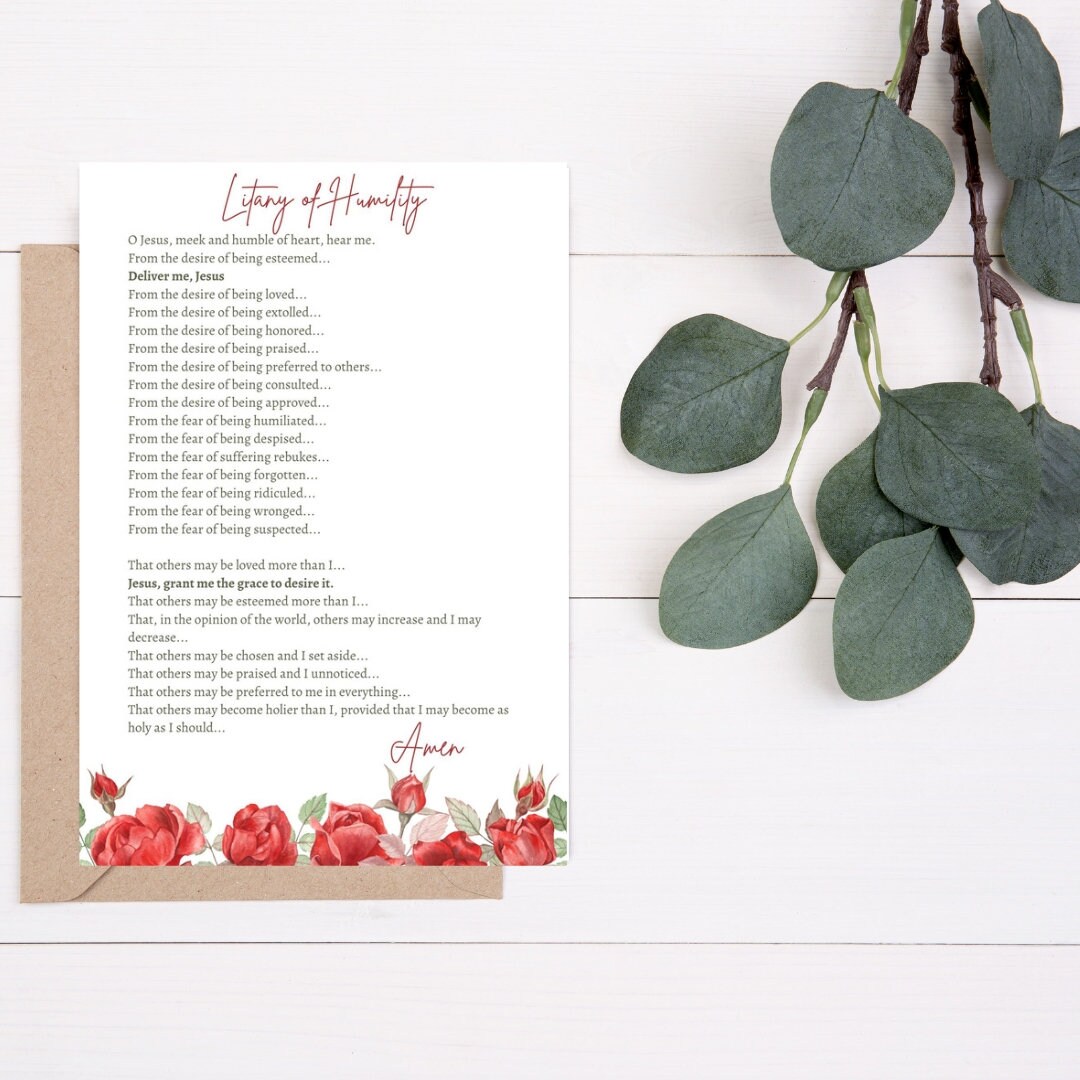 Litany of Humility
O Jesus, meek and humble of heart, hear me.
From the desire of being esteemed...
Deliver me, Jesus
From the desire of being loved...
From the desire of being extolled...
From the desire of being honored...
From the desire of being praised...
From the desire of being preferred to others...
From the desire of being consulted...
From the desire of being approved...
From the fear of being humiliated...
From the fear of being despised...
From the fear of suffering rebukes...
From the fear of being forgotten...
From the fear of being ridiculed...
From the fear of being wronged...
From the fear of being suspected...
That others may be loved more than I...
Jesus, grant me the grace to desire it.
That others may be esteemed more than I...
That, in the opinion of the world, others may increase and I may
decrease...
That others may be chosen and I set aside...
That others may be praised and I unnoticed...
That others may be preferred to me in everything...
That others may become holier than I, provided that I may become as
holy as I should...
Amen